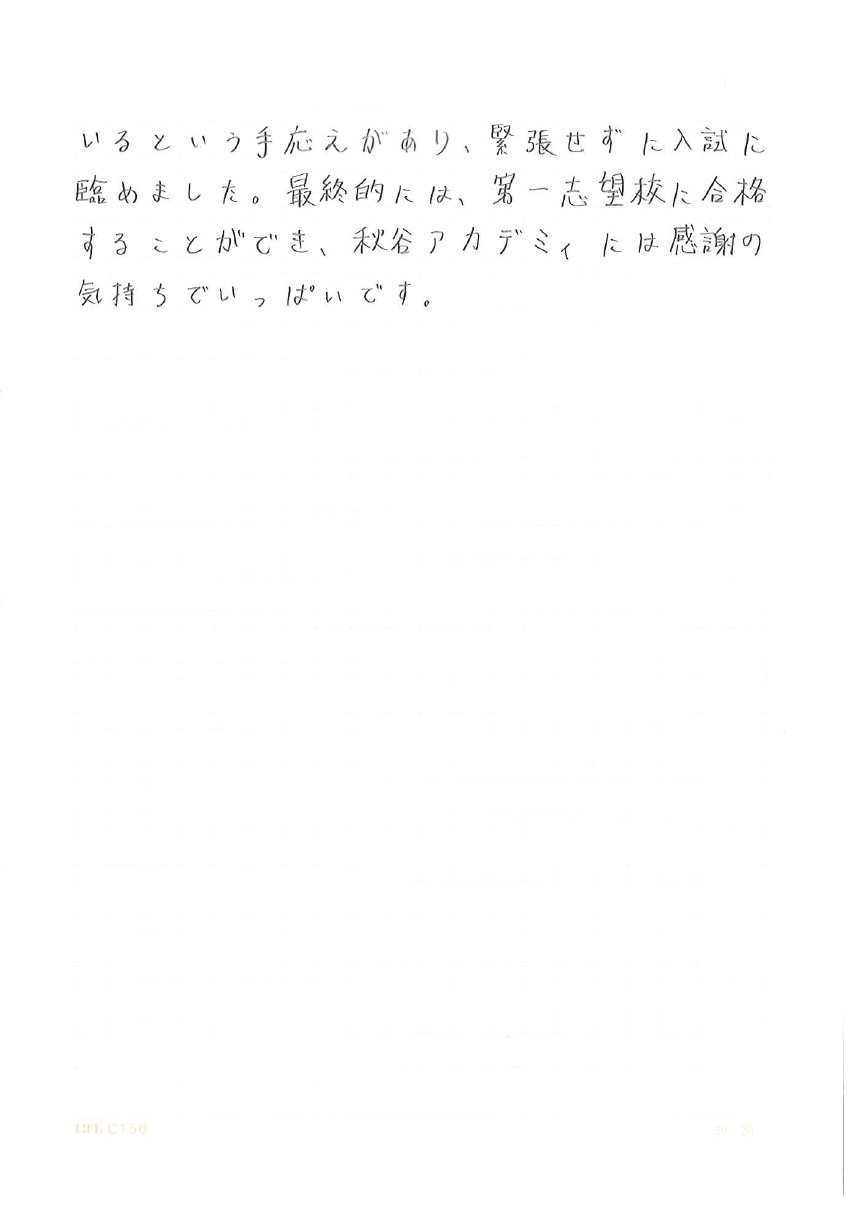 いるという手応えがあり、緊張せずに入試に
臨めました。最終的には、第一志望校に合格
することができ、秋谷アカデミィには感謝の
気持ちでいっぱいです。
LIFE C156
20 20